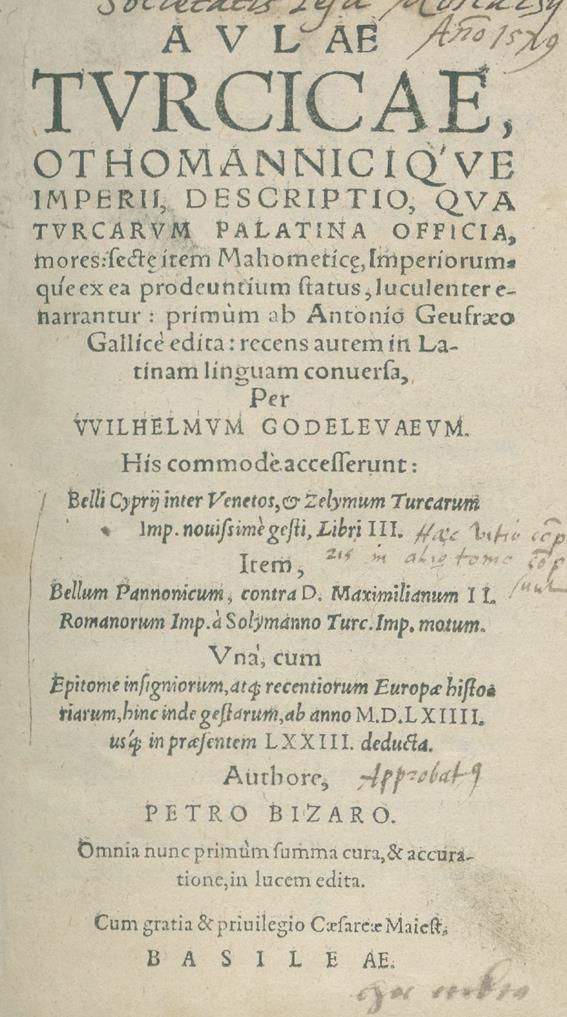 Societatis Jesu
Año 1579
AVLAE
TVRCICAE,
OTHOMANNICIQ'VE
IMPERII, DESCRIPTIO, QVA
TVRCARVM PALATINA OFFICIA,
mores: sectę item Mahometicę, Imperiorum-
q́ue ex ea prodeuntium status, luculenter e-
narrantur: primùm ab Antonio Geufræo
Gallicè edita: recens autem in La-
tinam linguam conuersa,
Per
VVILHELMVM GODELEVAEVM.
His commodè accesserunt:
Belli Cyprij inter Venetos, & Zelymum Turcarum
Imp. nouissimè gesti, Libri III.
Hæc
in alio tomo
Item,
Bellum Pannonicum, contra D. Maximilianum II.
Romanorum Imp. à Solymanno Turc. Imp. motum.
Vnà, cum
Epitome insigniorum, atq; recentiorum Europæ histo-
riarum, hinc inde gestarum, ab anno M.D.LXIIII.
usq́; in præsentem LXXIII. deducta.
Authore,
Approbat9
PETRO BIZARO.
Omnia nunc primùm summa cura, & accura-
tione, in lucem edita.
Cum gratia & priuilegio Cæsareæ Maiest.
BASILEAE.